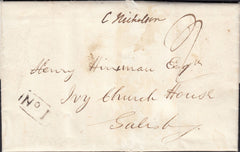 C Nicholson
2
Henry Hinxman Esqre
Ivy Church House
No 1